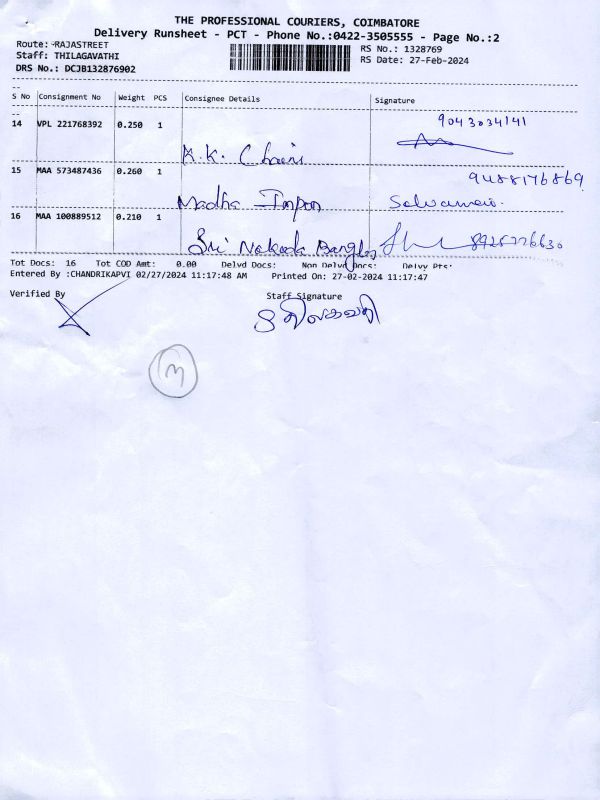 THE PROFESSIONAL COURIERS, COIMBATORE
Delivery Runsheet - PCT - Phone No.:0422-3505555 - Page No.:2
Route: RAJASTREET RS No.: 1328769
Staff: THILAGAVATHI RS Date: 27-Feb-2024
DRS No.: DCJB132876902
S No Consignment No Weight PCS Consignee Details Signature
14 VPL 221768392 0.250 1 9043034141
K.K. Chains
15 MAA 573487436 0.260 1 9488176869
Madha Impon
16 MAA 100889512 0.210 1
Sri Nakoda Bangles 8925776630
Tot Docs: 16 Tot COD Amt: 0.00 Delvd Docs: Non Delvd Docs: Delvy Pts:
Entered By :CHANDRIKAPVI 02/27/2024 11:17:48 AM Printed On: 27-02-2024 11:17:47
Verified By Staff Signature